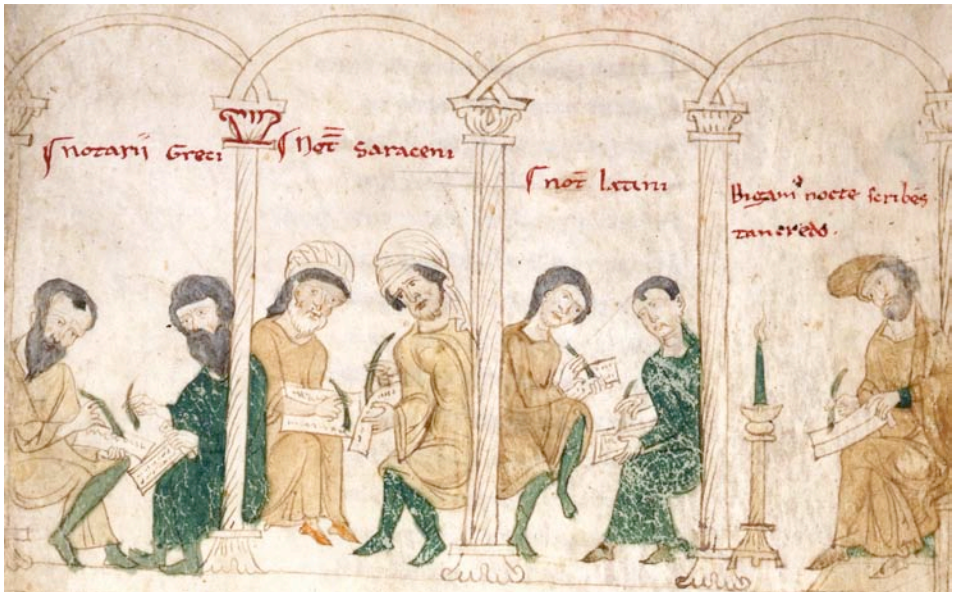 notarii Greci
Not̅ Saraceni
not̅ latini
Bigam᾿ nocte scribe̅s
tancredo.